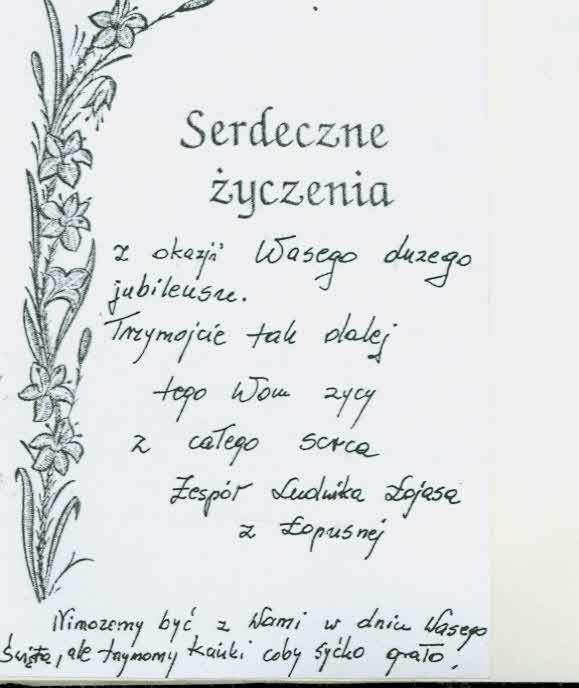 Serdeczne
życzenia
z okazji Wasego duzego
jubileusu.
Trzymojcie tak dalej
tego Wom zycy
z całego serca
Zespół Ludwika Łojasa
z Łopusnej
Nimozemy być z Wami w dniu Wasego
Święta, ale trzymomy kciuki coby syćko grało.